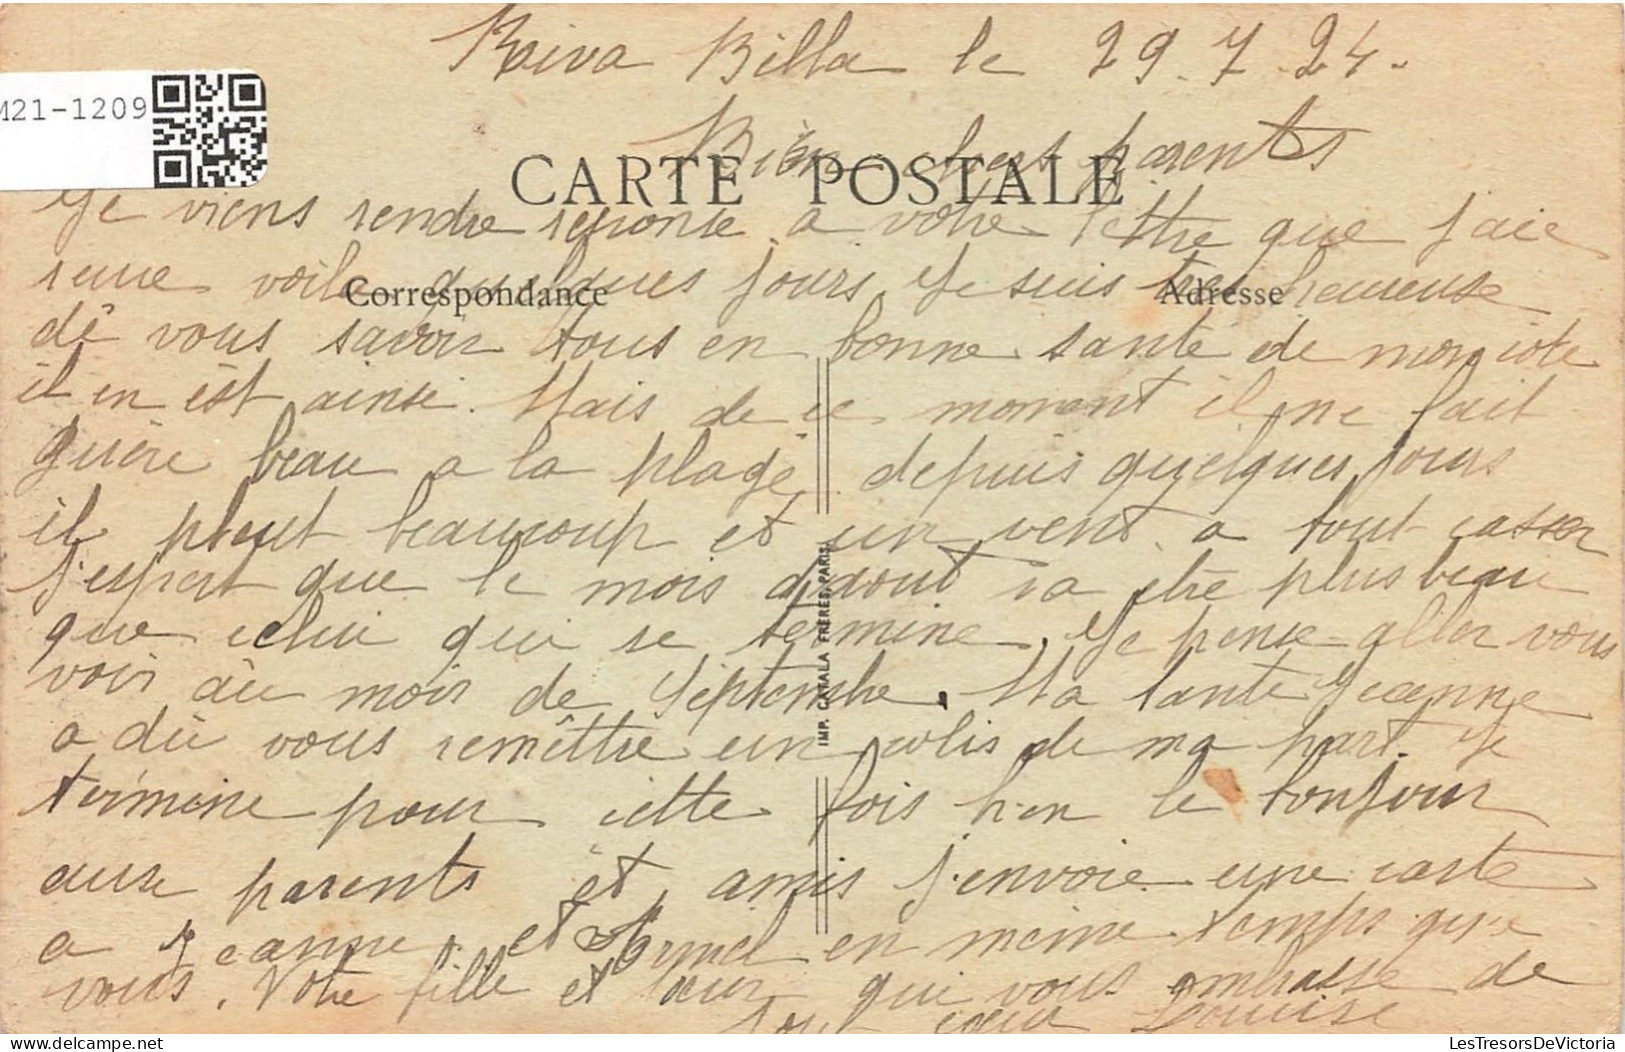 Riva Billa le 29.7.24.
M21-1209
Bien chers parents
CARTE POSTALE
Je viens rendre reponse a votre lettre que jaie
recue voila quelques jours Je suis tres heureuse
Correspondance
Adresse
de vous savoir tous en bonne santé de mon cote
il en est ainsi. Mais de ce moment il ne fait
guère beau a la plage, depuis quelques jours
il pleut beaucoup et un vent a tout casser
j'espert que le mois daout va etre plus beau
que celui qui se termine. Je pense aller vous
voir au mois de Septembre. Ma tante Jeanne
a dû vous remêttre un colis de ma part. Je
termine pour cette fois bien le bonjour
aux parents et amis j'envoie une carte
a Jeanne et en meme temps que
vous. Votre fille et soeur qui vous embrasse de
tout cœur Louise
IMP. CATALA FRERES, PARIS.
LesTresorsDeVictoria
delcampe.net